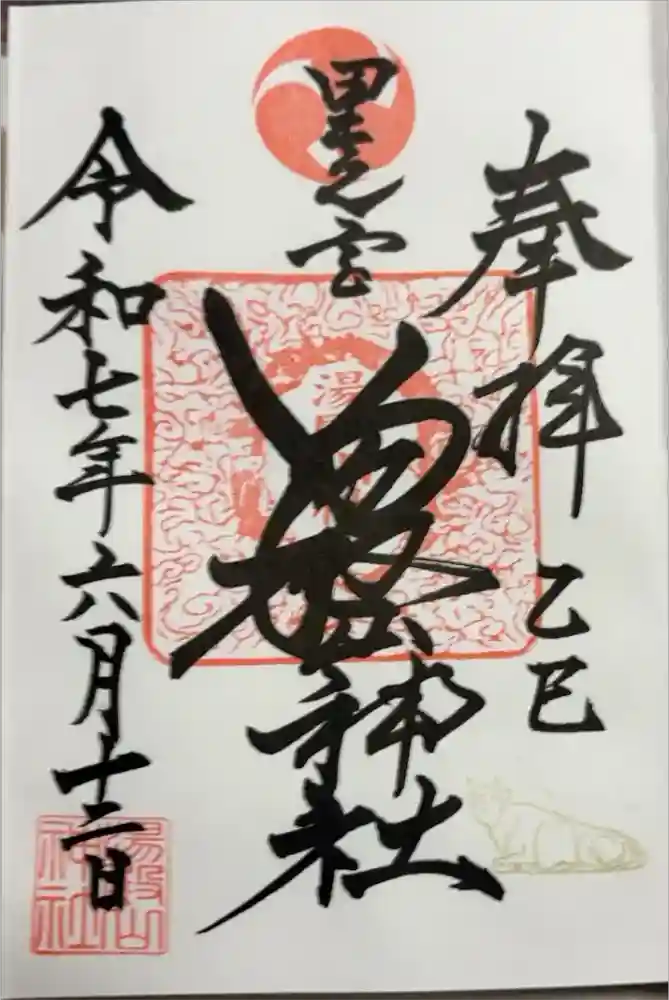 奉拝 乙巳
里之宮
湯殿山神社
令和七年六月十二日
湯
湯殿山
神社